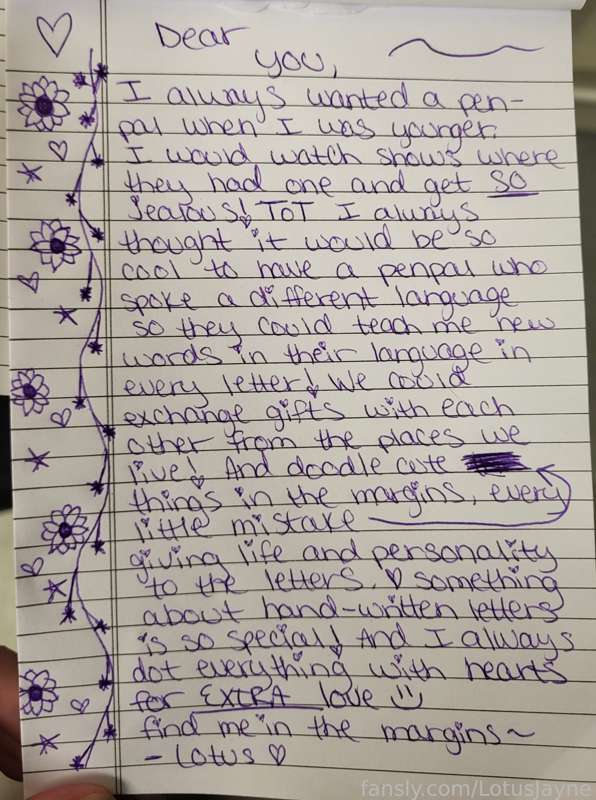 Dear
you,
I always wanted a pen-
pal when I was younger.
I would watch shows where
they had one and get SO
jealous! ToT I always
thought it would be so
cool to have a penpal who
spoke a different language
so they could teach me new
words in their language in
every letter! We could
exchange gifts with each
other from the places we
live! And doodle cute
things in the margins, every
little mistake
giving life and personality
to the letters. ♡ something
about hand-written letters
is so special! And I always
dot everything with hearts
for EXTRA love :)
find me in the margins~
- Lotus ♡
fansly.com/LotusJayne